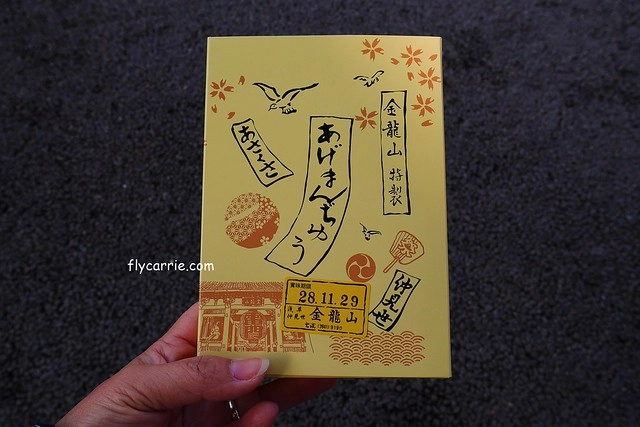 金龍山 特製
あげまんぢゅう
あさくさ
仲見世
flycarrie.com
賞味期限
28.11.29
浅草
仲見世
金龍山